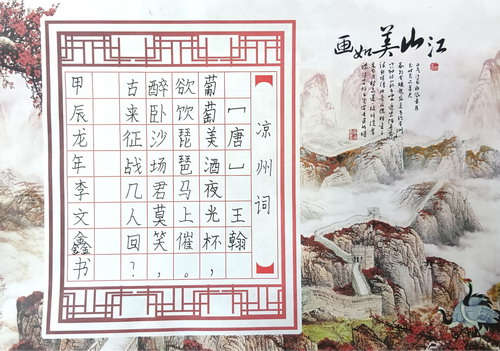 江山美如画
凉州词
［唐］王翰
葡萄美酒夜光杯，
欲饮琵琶马上催。
醉卧沙场君莫笑，
古来征战几人回？
甲辰龙年李文鑫书